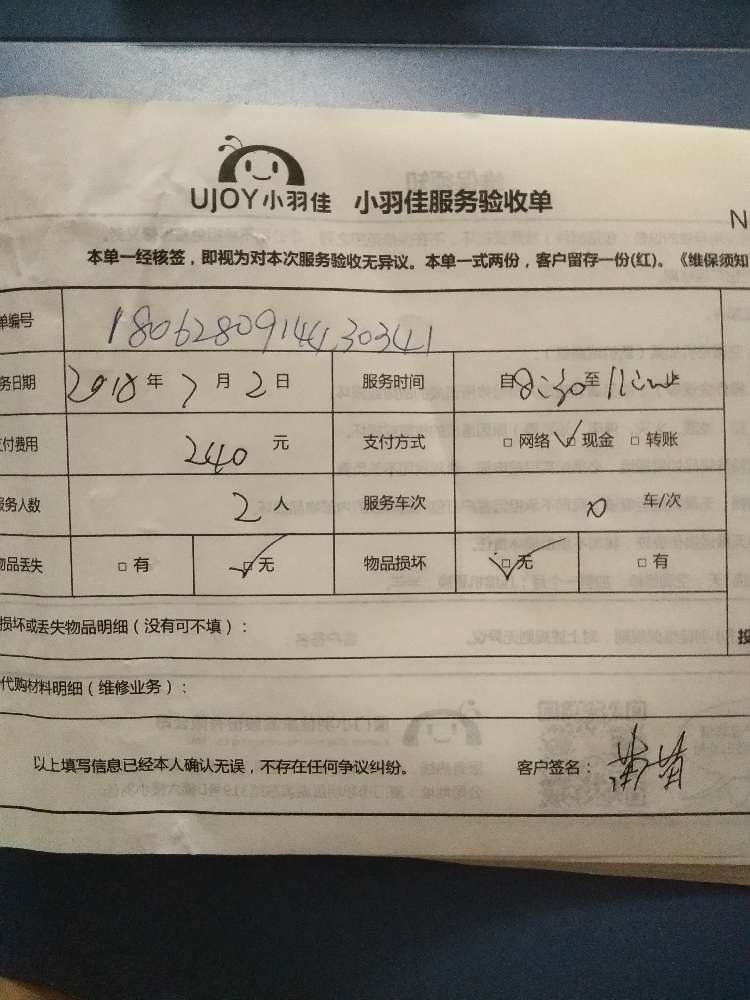 UJOY小羽佳 小羽佳服务验收单
N
本单一经核签，即视为对本次服务验收无异议。本单一式两份，客户留存一份(红)。《维保须知
单编号 18062809144130341
务日期 2018 年 7 月 2 日 服务时间 自 8:30 至 11:30 止
支付费用 240 元 支付方式 □ 网络 ☑ 现金 □ 转账
服务人数 2 人 服务车次 0 车/次
物品丢失 □ 有 ☑ 无 物品损坏 ☑ 无 □ 有
损坏或丢失物品明细（没有可不填）： 投
代购材料明细（维修业务）：
以上填写信息已经本人确认无误，不存在任何争议纠纷。 客户签名：